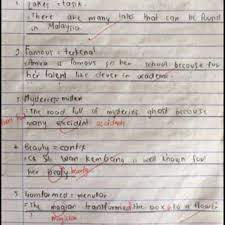 1. Lakes = tasik
There are many lake that can be found
in Malaysia.
2. Famous = terkenal
is famous in her school because for
her talent like clever in academic
3. Mysteries = misteri
The road full of mysteries ghost because
many accident accidents
4. Beauty = cantik
She wan kembang is well known for
her beauty
5. transformed = menukar
The magician transformed the box to a flower
Magician